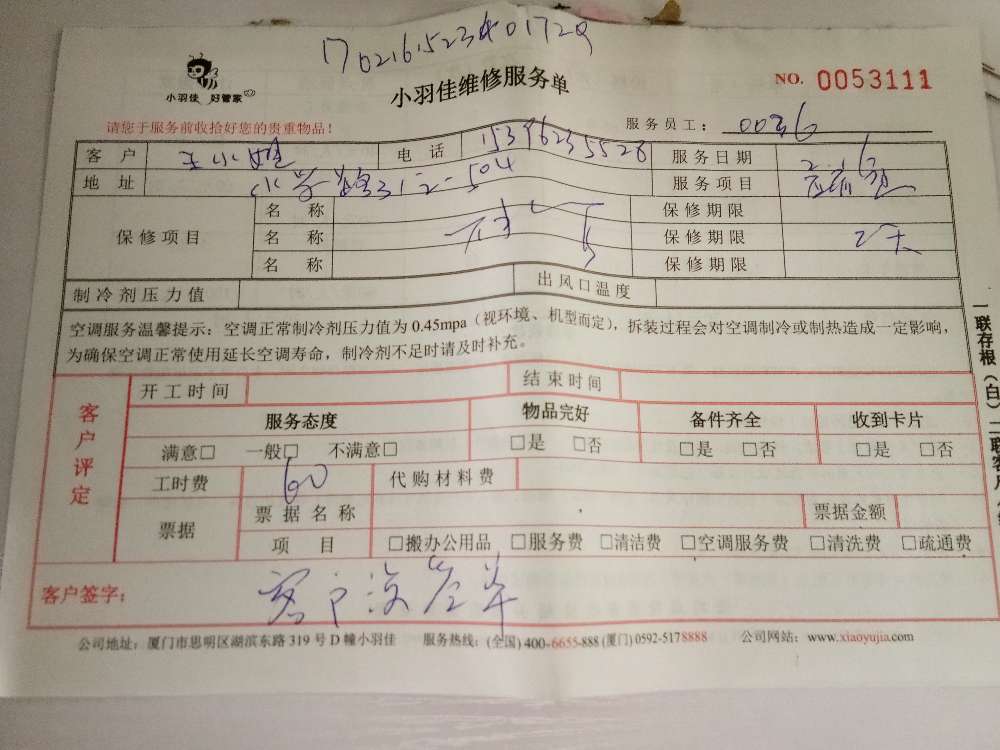 小羽佳 好管家
小羽佳维修服务单
NO. 0053111
请您于服务前收拾好您的贵重物品!
服务员工: 0036
客户 王小姐 电话 15396235528 服务日期
地址 312-504 服务项目
保修项目 名称 保修期限
名称 保修期限 2天
名称 保修期限
制冷剂压力值 出风口温度
空调服务温馨提示:空调正常制冷剂压力值为 0.45mpa(视环境、机型而定),拆装过程会对空调制冷或制热造成一定影响,
为确保空调正常使用延长空调寿命,制冷剂不足时请及时补充。
客户评定
开工时间 结束时间
服务态度 物品完好 备件齐全 收到卡片
满意□ 一般□ 不满意□ □是 □否 □是 □否 □是 □否
工时费 60 代购材料费
票据 票据名称 票据金额
项目 □搬办公用品 □服务费 □清洁费 □空调服务费 □清洗费 □疏通费
客户签字: 客户没签单
公司地址:厦门市思明区湖滨东路 319 号 D 幢小羽佳 服务热线:(全国) 400-6655-888 (厦门) 0592-5178888 公司网站:www.xiaoyujia.com
一联存根(白)二联客户